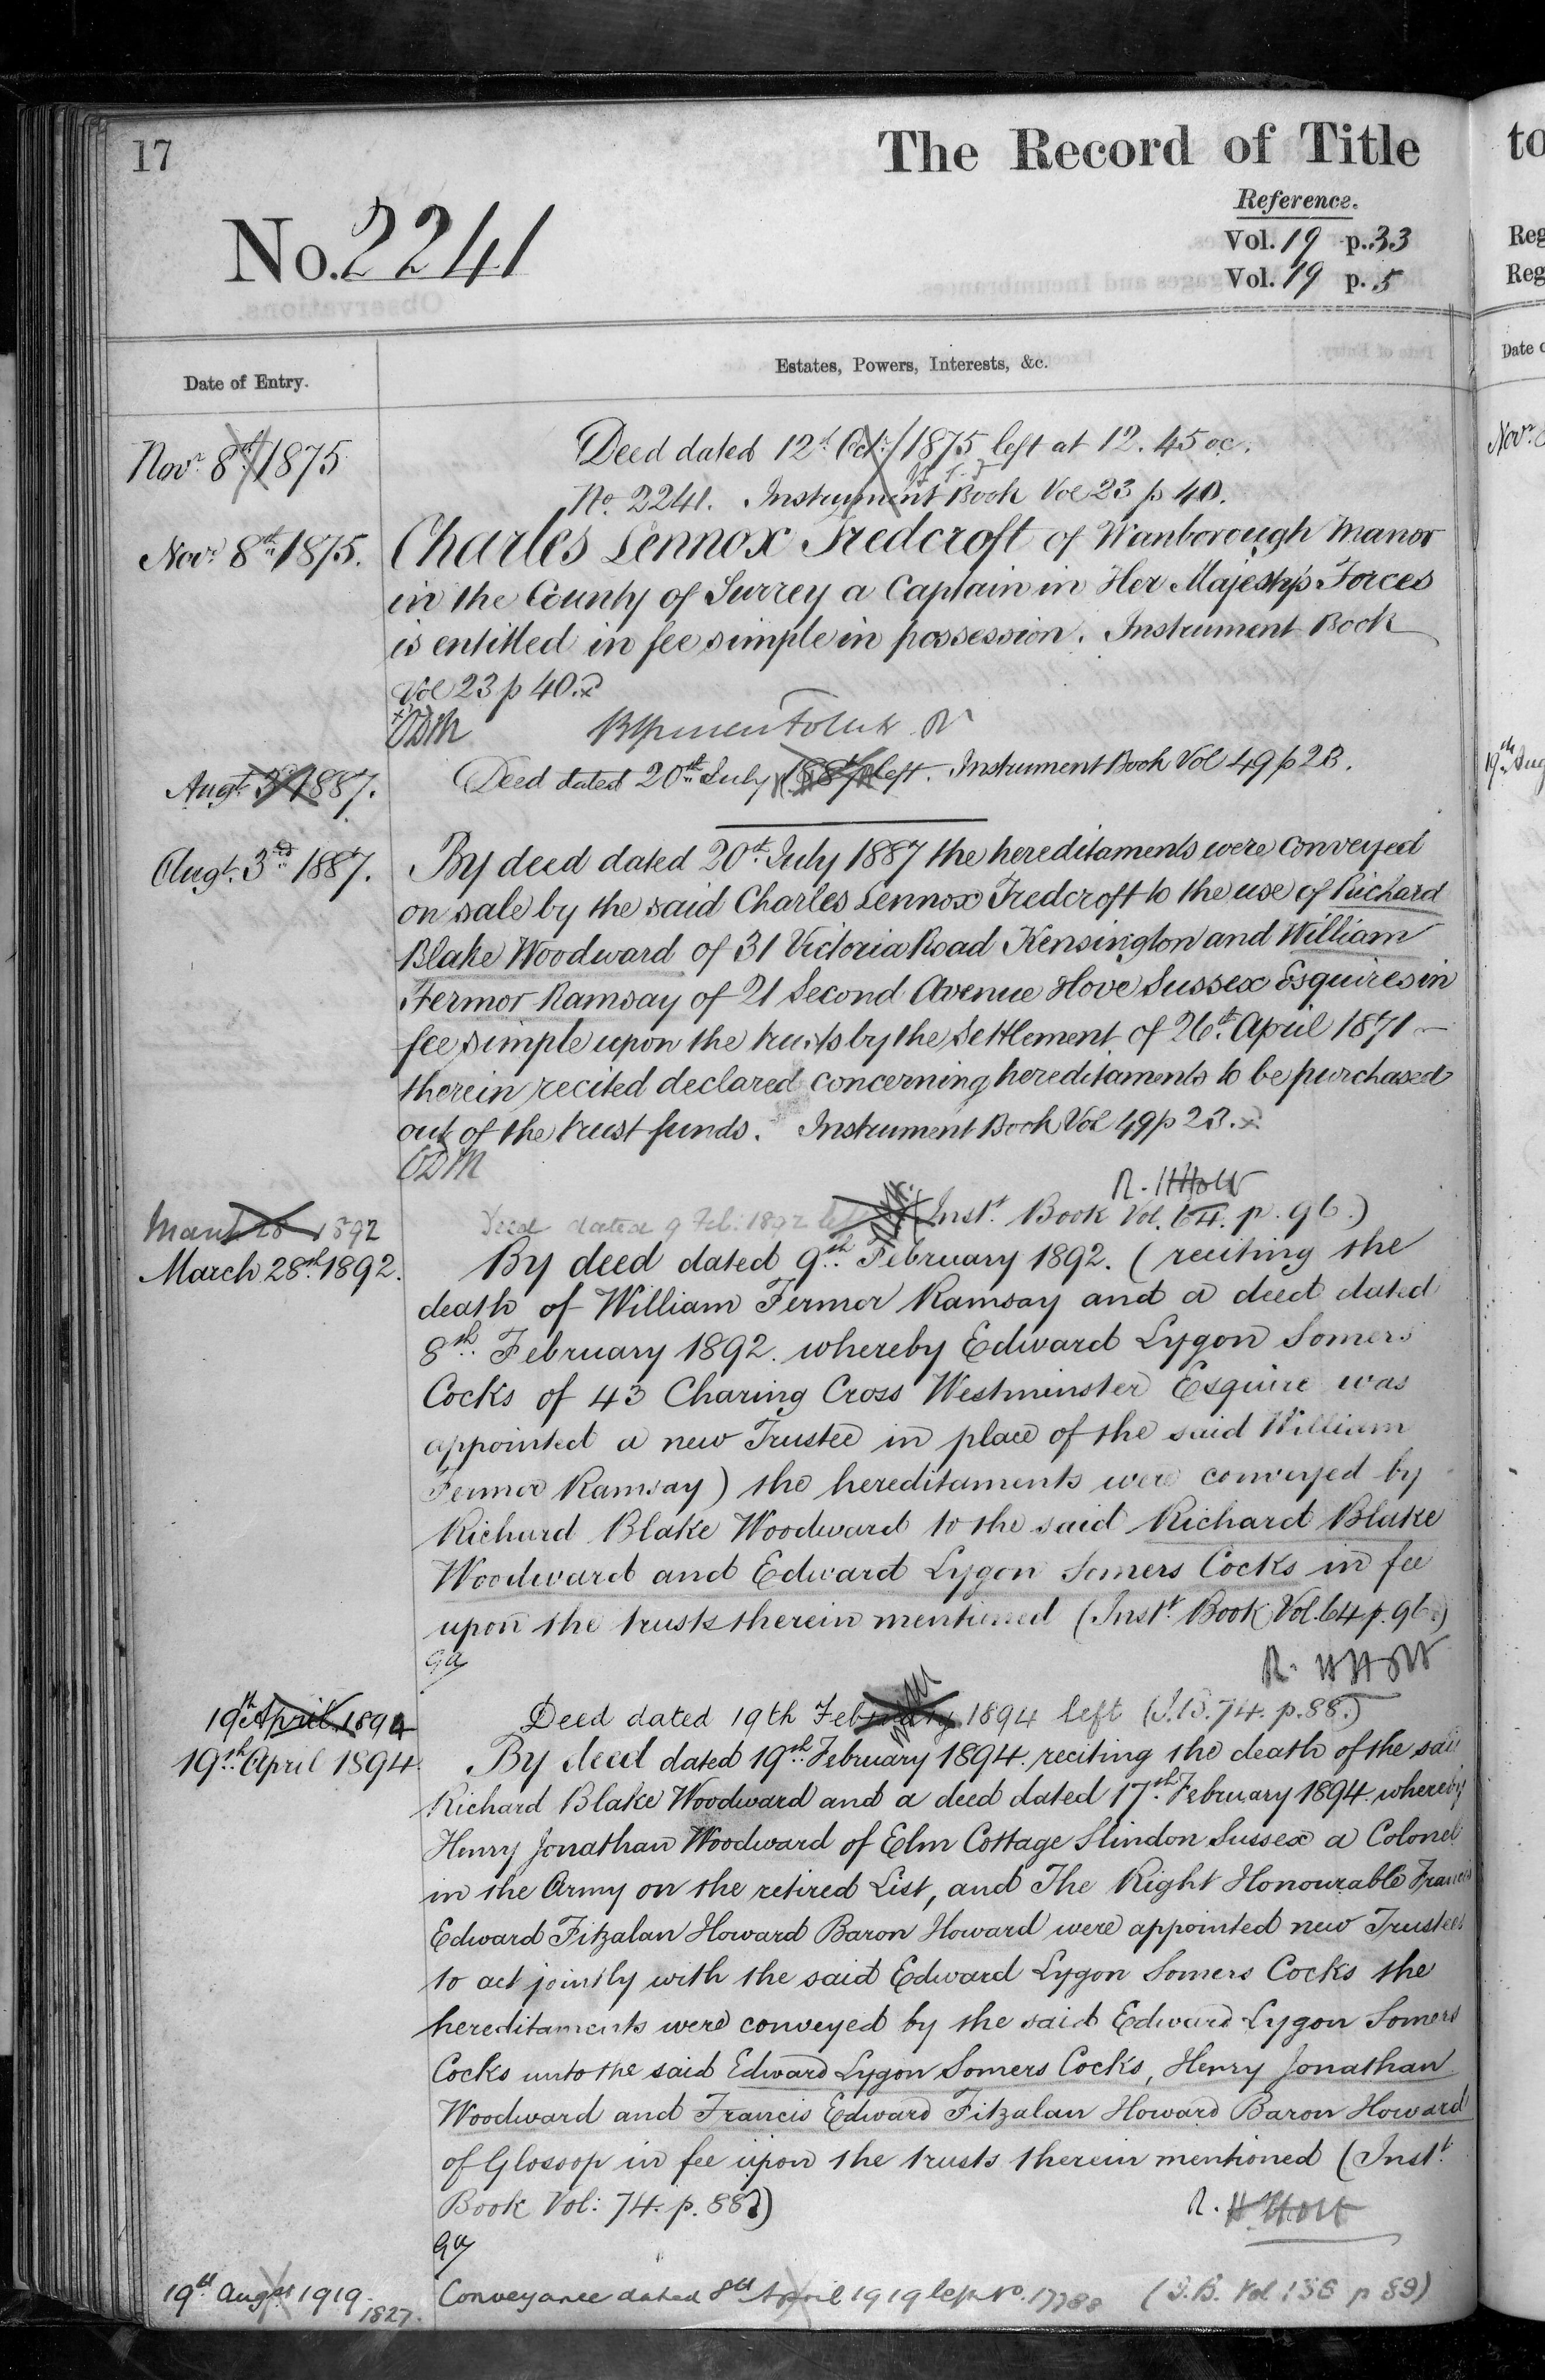 17
The Record of Title
Reference.
No. 2241
Vol. 19 p. 33
Vol. 19 p. 5
Date of Entry.
Estates, Powers, Interests, &c.
Novr. 8th 1875
Deed dated 12th Oct. 1875 left at 12.45 oc.
No. 2241. Instrument Book Vol 23 p 40.
Novr. 8th 1875.
Charles Lennox Tredcroft of Wanborough Manor
in the County of Surrey a Captain in Her Majesty's Forces
is entitled in fee simple in possession. Instrument Book
Vol 23 p 40.
Augt. 3rd 1887.
Deed dated 20th July 1887 left. Instrument Book Vol 49 p 23.
Augt. 3rd 1887.
By deed dated 20th July 1887 the hereditaments were conveyed
on sale by the said Charles Lennox Tredcroft to the use of Richard
Blake Woodward of 31 Victoria Road Kensington and William
Fermor Ramsay of 21 Second Avenue Hove Sussex Esquires in
fee simple upon the trusts by the Settlement of 26th April 1871
therein recited declared concerning hereditaments to be purchased
out of the trust funds. Instrument Book Vol 49 p 23.
R. H Holt
March 28 1892
Deed dated 9 Feb. 1892 left (Instt. Book Vol. 64. p. 96.)
March 28th 1892.
By deed dated 9th February 1892. (reciting the
death of William Fermor Ramsay and a deed dated
8th February 1892. whereby Edward Lygon Somers
Cocks of 43 Charing Cross Westminster Esquire was
appointed a new Trustee in place of the said William
Fermor Ramsay) the hereditaments were conveyed by
Richard Blake Woodward to the said Richard Blake
Woodward and Edward Lygon Somers Cocks in fee
upon the trusts therein mentioned (Instt. Book Vol. 64 p. 96.)
R. H Holt
19th April 1894
Deed dated 19th February 1894 left (I.B. 74. p. 88.)
19th April 1894
By deed dated 19th February 1894. reciting the death of the said
Richard Blake Woodward and a deed dated 17th February 1894. whereby
Henry Jonathan Woodward of Elm Cottage Slindon Sussex a Colonel
in the Army on the retired List, and The Right Honourable Francis
Edward Fitzalan Howard Baron Howard were appointed new Trustees
to act jointly with the said Edward Lygon Somers Cocks the
hereditaments were conveyed by the said Edward Lygon Somers
Cocks unto the said Edward Lygon Somers Cocks, Henry Jonathan
Woodward and Francis Edward Fitzalan Howard Baron Howard
of Glossop in fee upon the trusts therein mentioned (Instt.
Book Vol: 74. p. 88)
R. H. Holt
19th August 1919
1827.
Conveyance dated 8th April 1919 left No. (I.B. Vol p 89)
to
Reg
Reg
Date o
Novr.
19th Aug